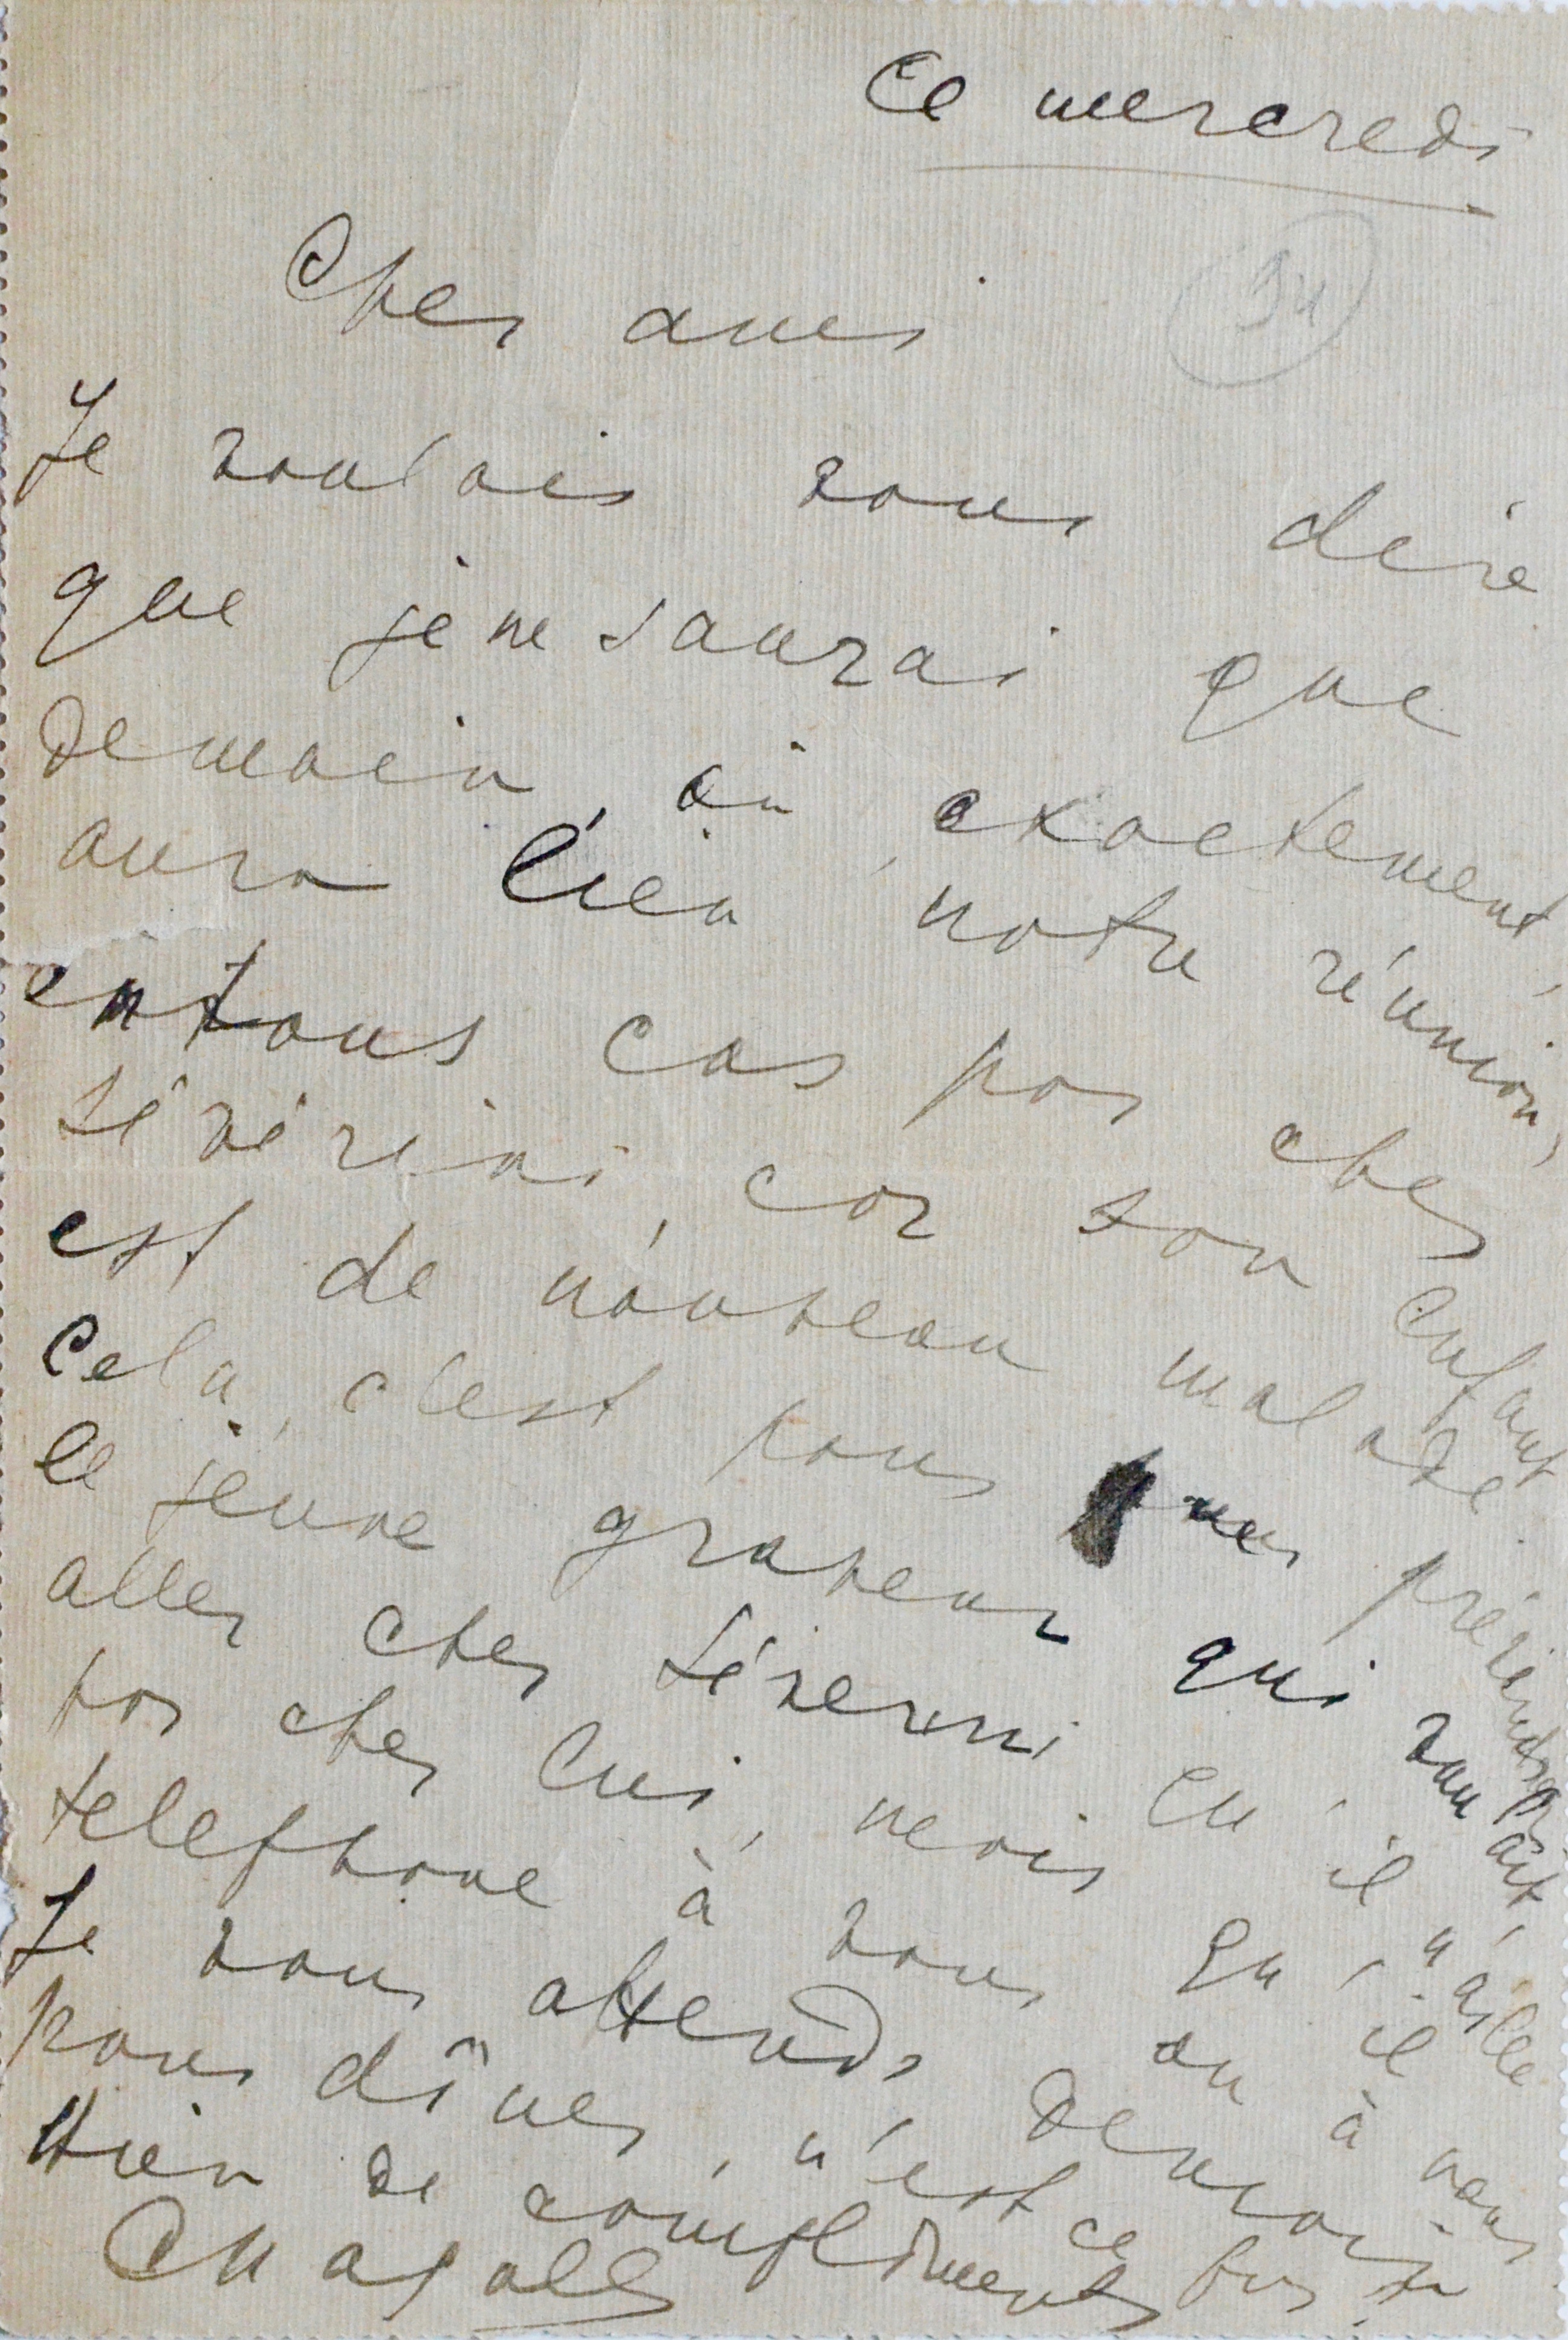 Ce mercredi
Cher ami
Je voulais vous dire
que je ne saurai que
demain, où exactement,
aura lieu notre réunion,
en tous cas pas chez
Sévérini, car son enfant
est de nouveau malade
Cela, c'est pour
le jeune graveur qui
aller chez Séverini
pas chez lui, mais il n'aille
telephone à vous ou à nous
Je vous attends demain
pour dîner, n'est ce pas ?
Bien de compliments
Chagall